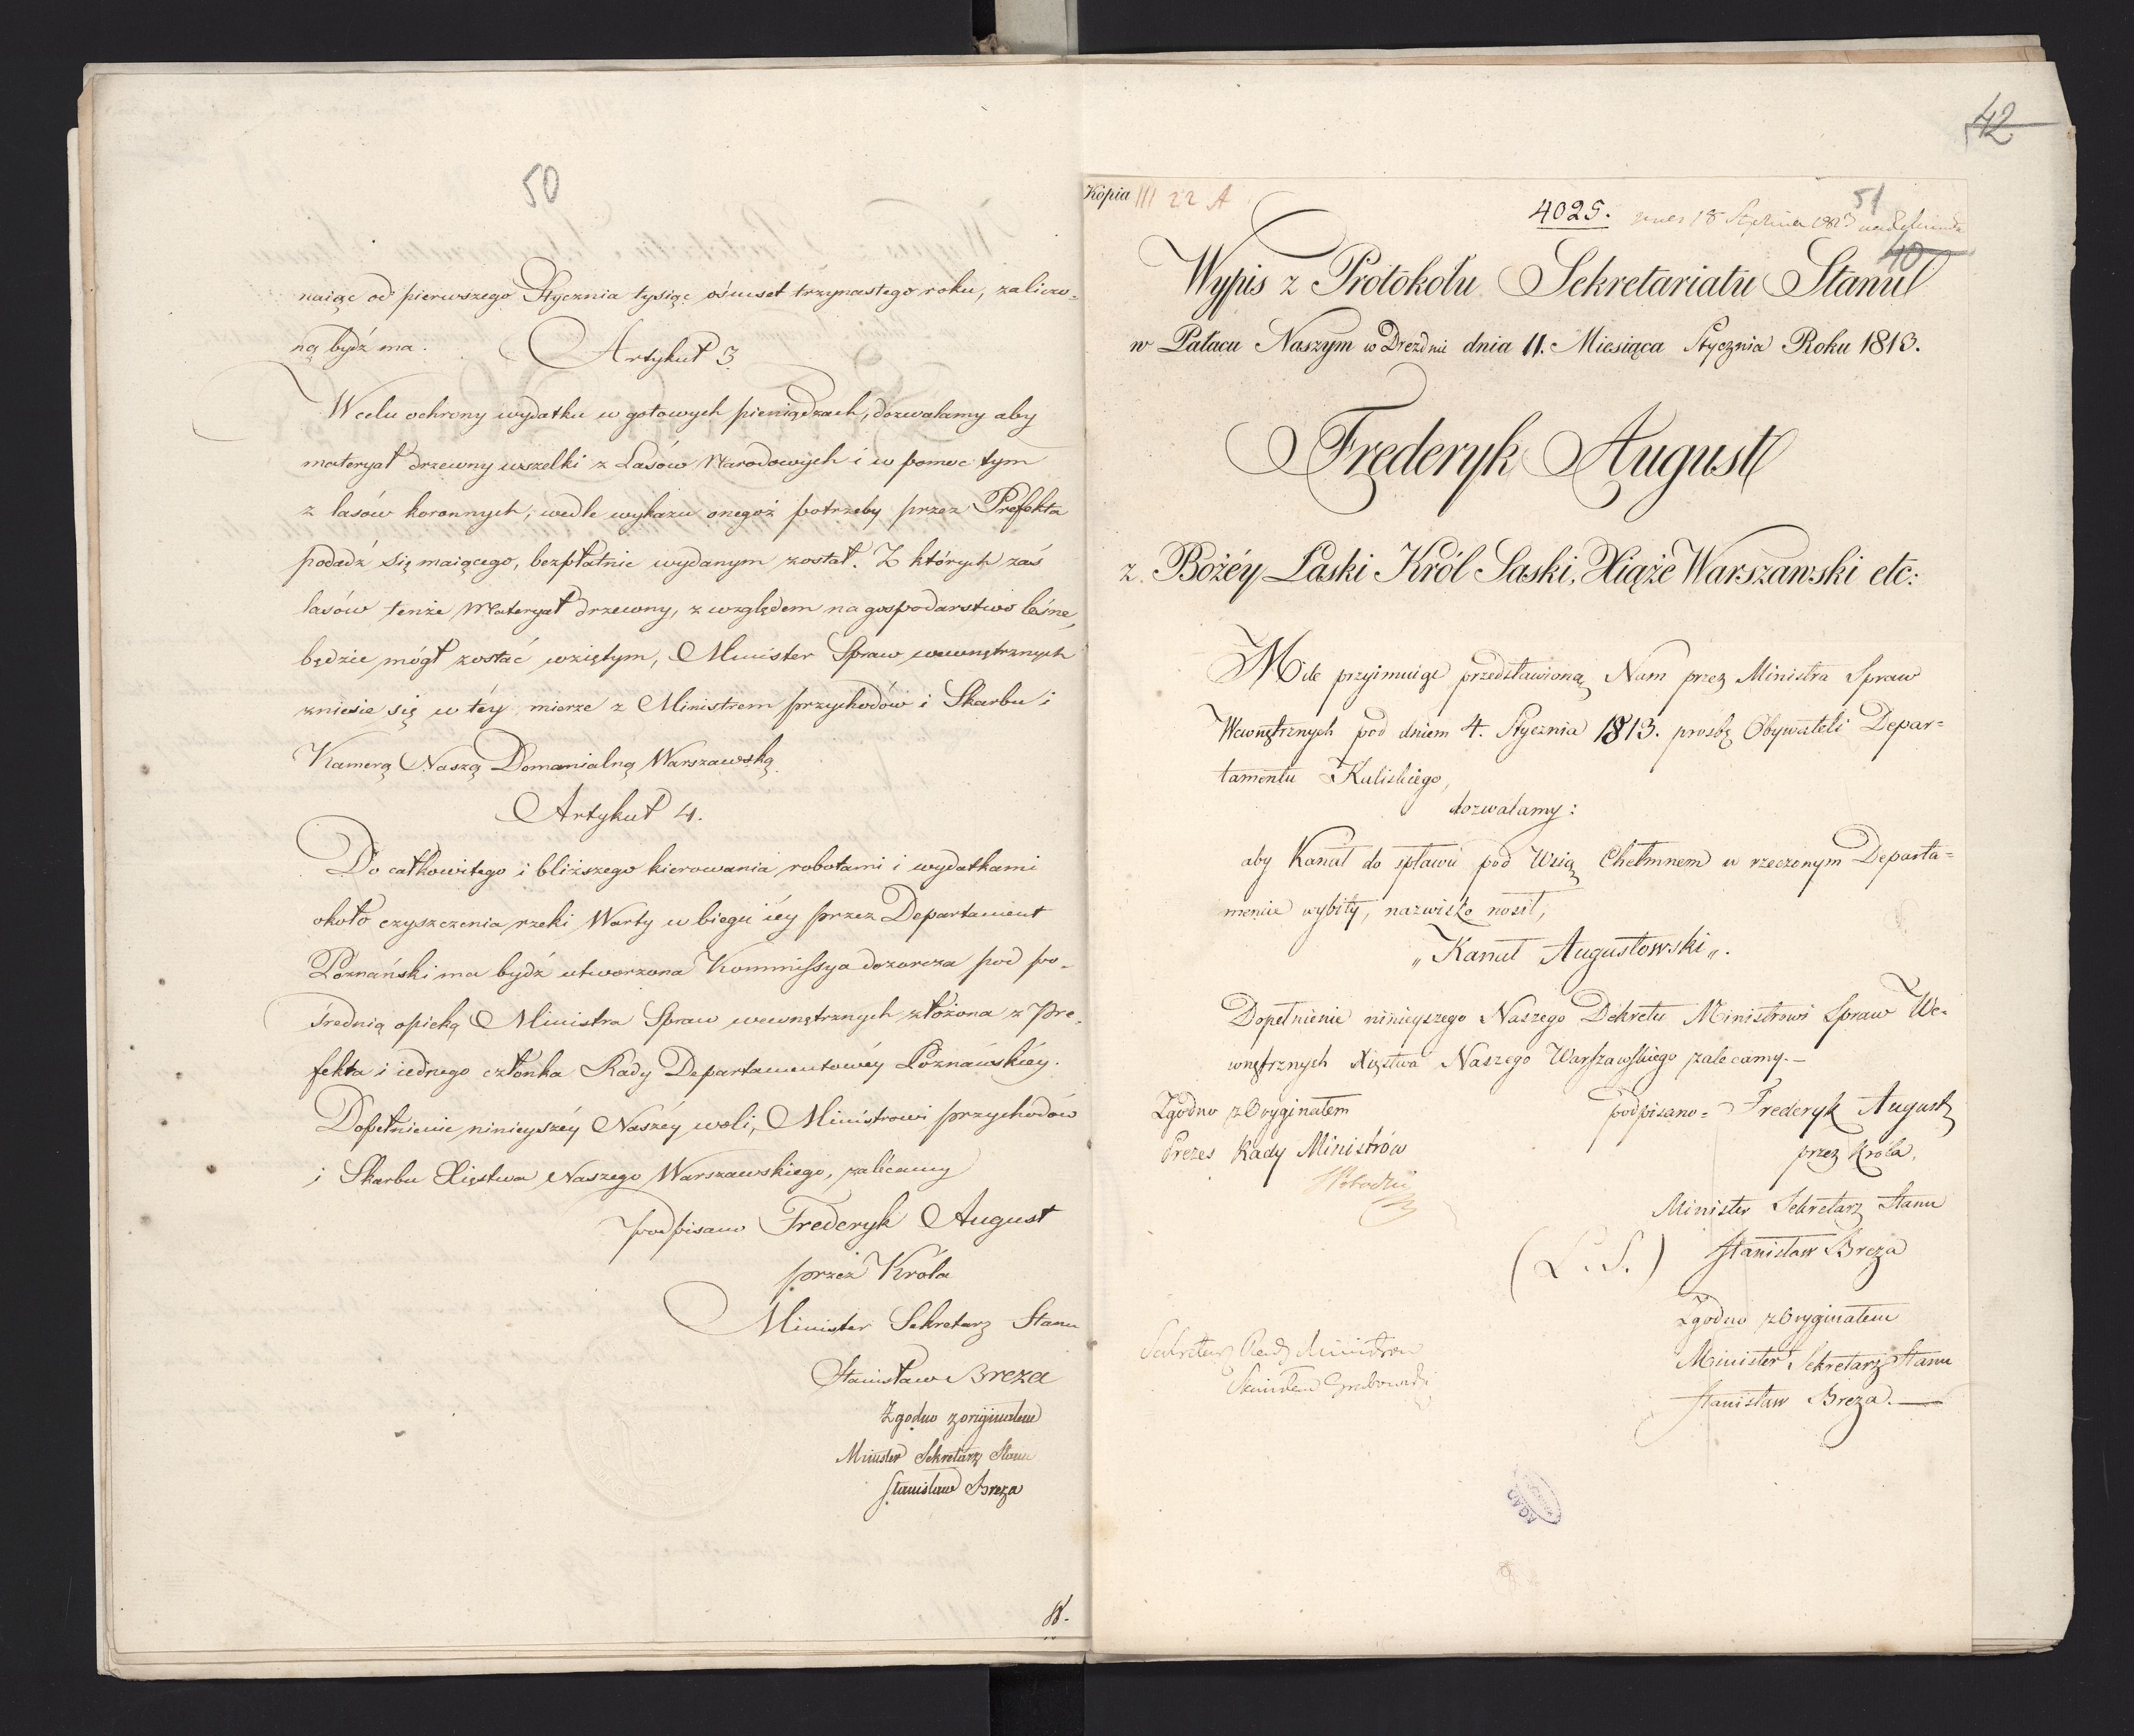 50
naiąc od pierwszego Stycznia tysiąc ośmset trzynastego roku, zaliczo-
ną bydź ma.
Artykuł 3.
W celu ochrony wydatku w gotowych pieniędzach, dozwalamy aby
materyał drzewny wszelki z Lasów Narodowych i w pomoc tym
z lasów koronnych, wedle wykazu onegoż potrzeby przez Prefekta
podadź się maiącego, bezpłatnie wydanym został. Z których zaś
lasów tenże Materyał drzewny, z względem na gospodarstwo leśne,
będzie mógł zostać wziętym, Minister Spraw wewnętrznych
zniesie się w téy mierze z Ministrem przychodów i Skarbu i
Kamerą Naszą Domanialną Warszawską.
Artykuł 4.
Do całkowitego i bliższego kierowania robotami i wydatkami
około czyszczenia rzeki Warty w biegu iéy przez Departament
Poznański ma bydź utworzona Kommissya dozorcza pod po-
średnią opieką Ministra Spraw wewnętrznych złożona z Pre-
fekta i iednego członka Rady Departamentowéy Poznańskiéy.
Dopełnienie ninieyszéy Naszéy woli, Ministrowi przychodów
i Skarbu Xięstwa Naszego Warszawskiego, zalécamy
podpisano Frederyk August
przez Króla
Minister Sekretarz Stanu
Stanisław Breza
Zgodno z oryginałem
Minister Sekretarz Stanu
Stanisław Breza
42
Kopia III 22 A
51
4025. 18 Stycznia 1813
40
Wypis z Protokołu Sekretariatu Stanu
w Pałacu Naszym w Dreznie dnia 11. Miesiąca Stycznia Roku 1813.
Frederyk August
z Bożéy Łaski Król Saski, Xiąże Warszawski etc:
Mile przyimuiąc przedstawioną Nam przez Ministra Spraw
Wewnętrznych pod dniem 4. Stycznia 1813. prosbę Obywateli Depar=
tamentu Kaliskiego,
dozwalamy:
aby Kanał do spławu pod Wsią Chełmnem w rzeczonym Departa=
mencie wybity, nazwisko nosił;
„Kanał Augustowski„.
Dopełnienie ninieyszego Naszego Dekretu Ministrowi Spraw We=
wnętrznych Xięstwa Naszego Warszawskiego zalecamy.—
Zgodno z Oryginałem
Prezes Rady Ministrów
podpisano= Frederyk August
przez Króla,
Minister Sekretarz Stanu
(L. S.) Stanisław Breza
Zgodno z Oryginałem
Minister Sekretarz Stanu
Stanisław Breza.—
Sekretarz Rady Ministrów
Stanisław Grabowski
AGAD